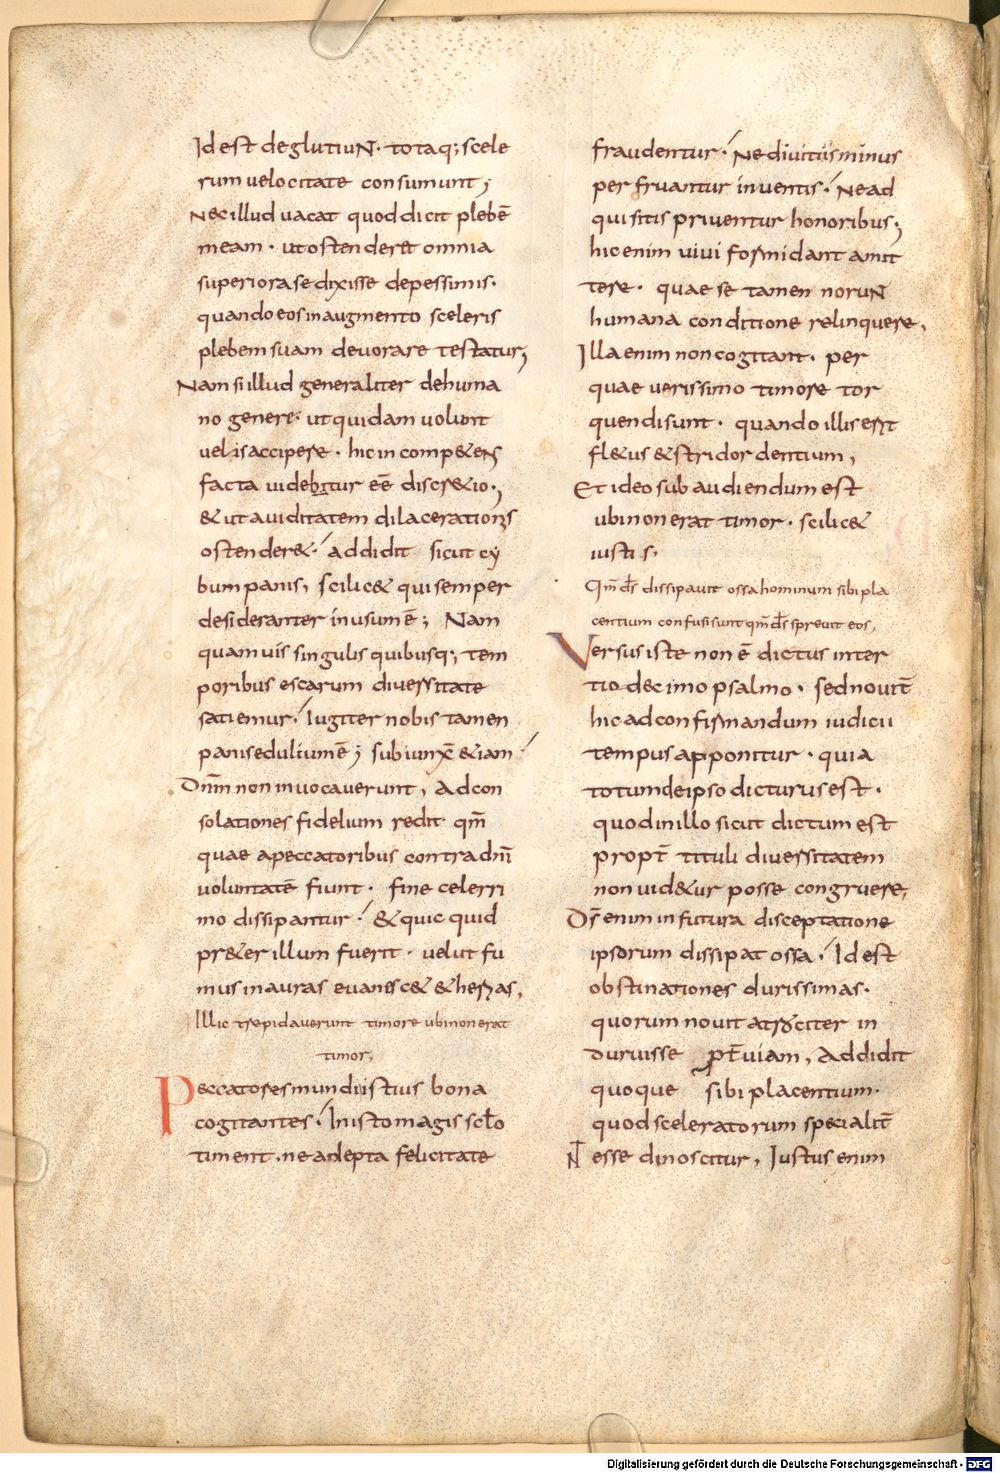 Id est deglutiuN. totaq; scele
rum uelocitate consumunt;
Nec illud uacat quod dicit plebē
meam. ut ostenderet omnia
superiora se dixisse de pessimis.
quando eos in augmento sceleris
plebem suam deuorare testatur;
Nam si illud generaliter de huma
no genere. ut quidam uolunt
uelis accipere. hic incomp&ens
facta uidebitur eē discr&io.,
& ut auiditatem dilacerationis
ostender&. addidit sicut cy
bum panis, scilic& qui semper
desideranter in usum ē; Nam
quamuis singulis quibusq; tem
poribus escarum diuersitate
satiemur. Iugiter nobis tamen
panis edulium ē; subiunxĒ &iam
Dnm̄ non inuocauerunt, Ad con
solationes fidelium redit qm̄
quae a peccatoribus contra dnī
uoluntatē fiunt. fine celerri
mo dissipantur. & quic quid
pr&er illum fuerit. uelut fu
mus in auras euanesc& &heras,
Illic trepidauerunt timore ubi non erat
timor,
Peccatores mundi istius bona
cogitantes. In isto magis scło
timent. ne adepta felicitate
fraudentur. Ne diuitiis minus
perfruantur inuentis. Ne ad
quisitis priuentur honoribus;
hic enim uiui formidant amit
tere. quae se tamen noruN
humana conditione relinquere,
Illa enim non cogitant. per
quae uerissimo timore tor
quendi sunt. quando illis erit
fl&us & stridor dentium,
Et ideo subaudiendum est
ubi non erat timor. scilic&
iustis.
Qm̄ ds̄ dissipauit ossa hominum sibi pla
centium confusi sunt qm̄ ds̄ spreuit eos,
Versus iste non ē dictus in ter
tio decimo psalmo. sed nouit̄
hic ad confirmandum iudicii
tempus apponitur. quia
totum de ipso dicturus est.
quod in illo sicut dictum est
propt̄ tituli diuersitatem
non uid&ur posse congruere,
Ds̄ enim in futura disceptatione
ipsorum dissipat ossa. Id est
obstinationes durissimas.
quorum nouit atrociter in
duruisse pt̄uiam, Addidit
quoque sibi placentium.
quod sceleratorum specialit̄
esse dinoscitur, Iustus enim
Digitalisierung gefördert durch die Deutsche Forschungsgemeinschaft - DFG